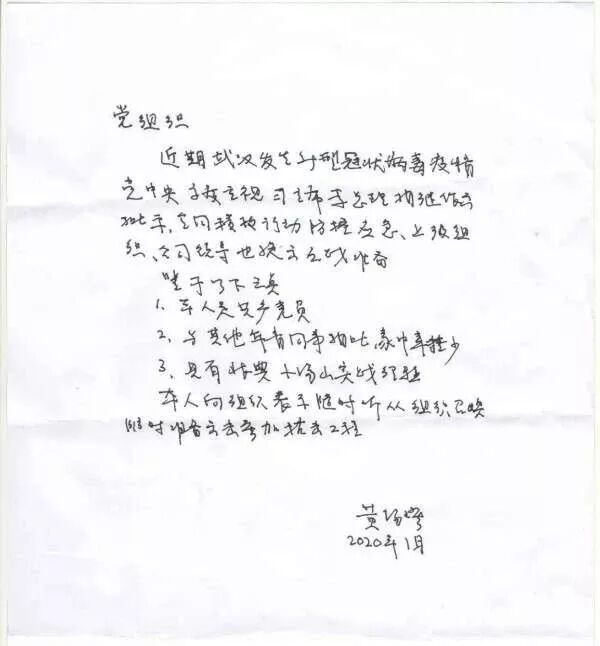 党组织
近期武汉发生新型冠状病毒疫情
党中央高度重视习主席李总理相继作出
批示,全国积极行动防控应急、上级组
织、公司领导也提出应战准备
鉴于以下三点
1、本人是共产党员
2、与其他年青同事相比,家中牵挂少
3、具有北京小汤山实战经验
本人向组织表示随时听从组织召唤
随时准备出击参加抗击工程
黄锡璆
2020年1月